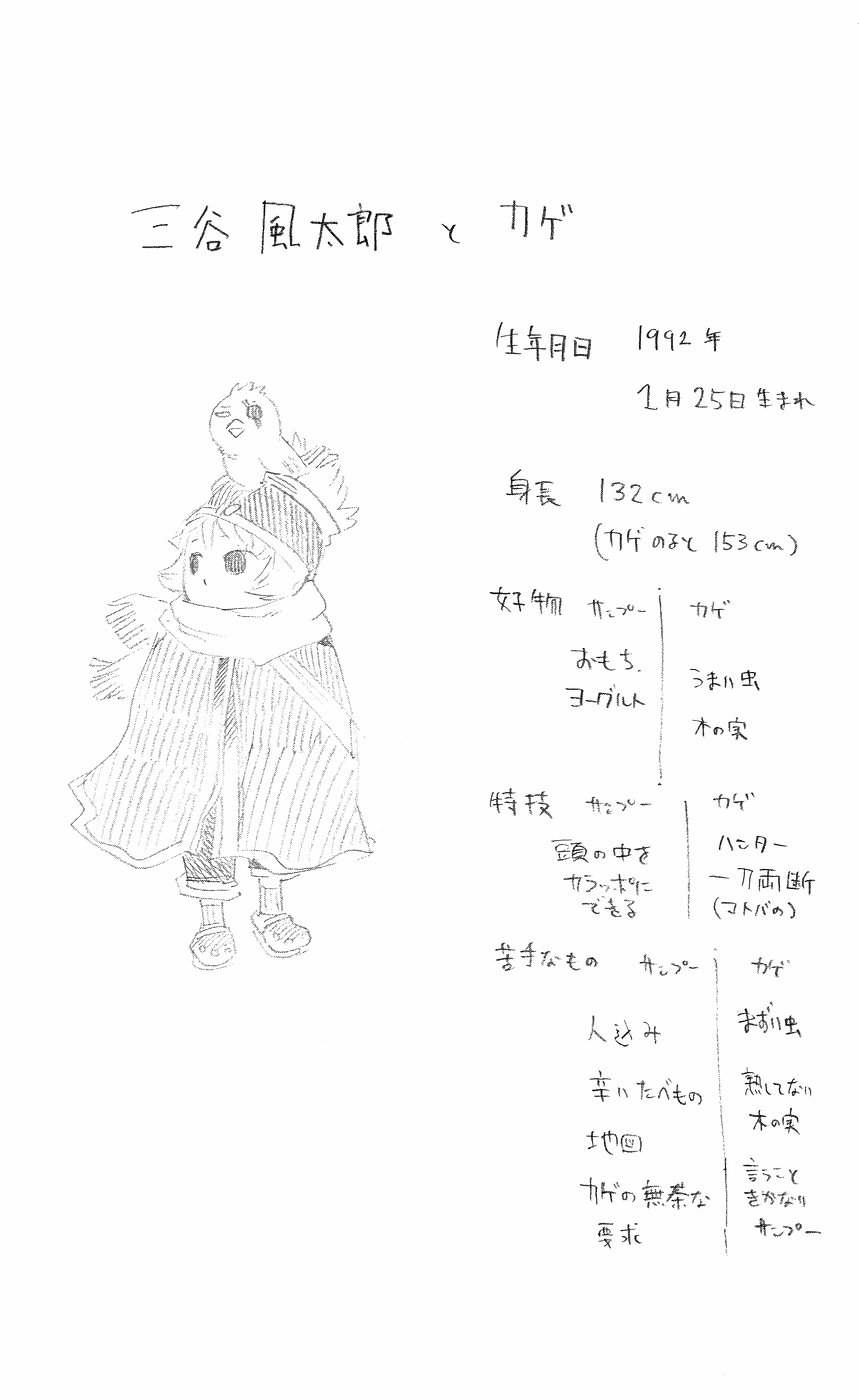 三谷 風太郎 と カゲ
生年月日 1992年
1月25日生まれ
身長 132cm
(カゲのると 153cm)
好物 サンプー カゲ
おもち、
ヨーグルト
うまい虫
木の実
特技 サンプー カゲ
頭の中を
カラッポに
できる
ハンター
一刀両断
(マトバの)
苦手なもの サンプー カゲ
人込み
辛いたべもの
地図
カゲの無茶な
要求
まずい虫
熟してない
木の実
言うこと
きかない
サンプー